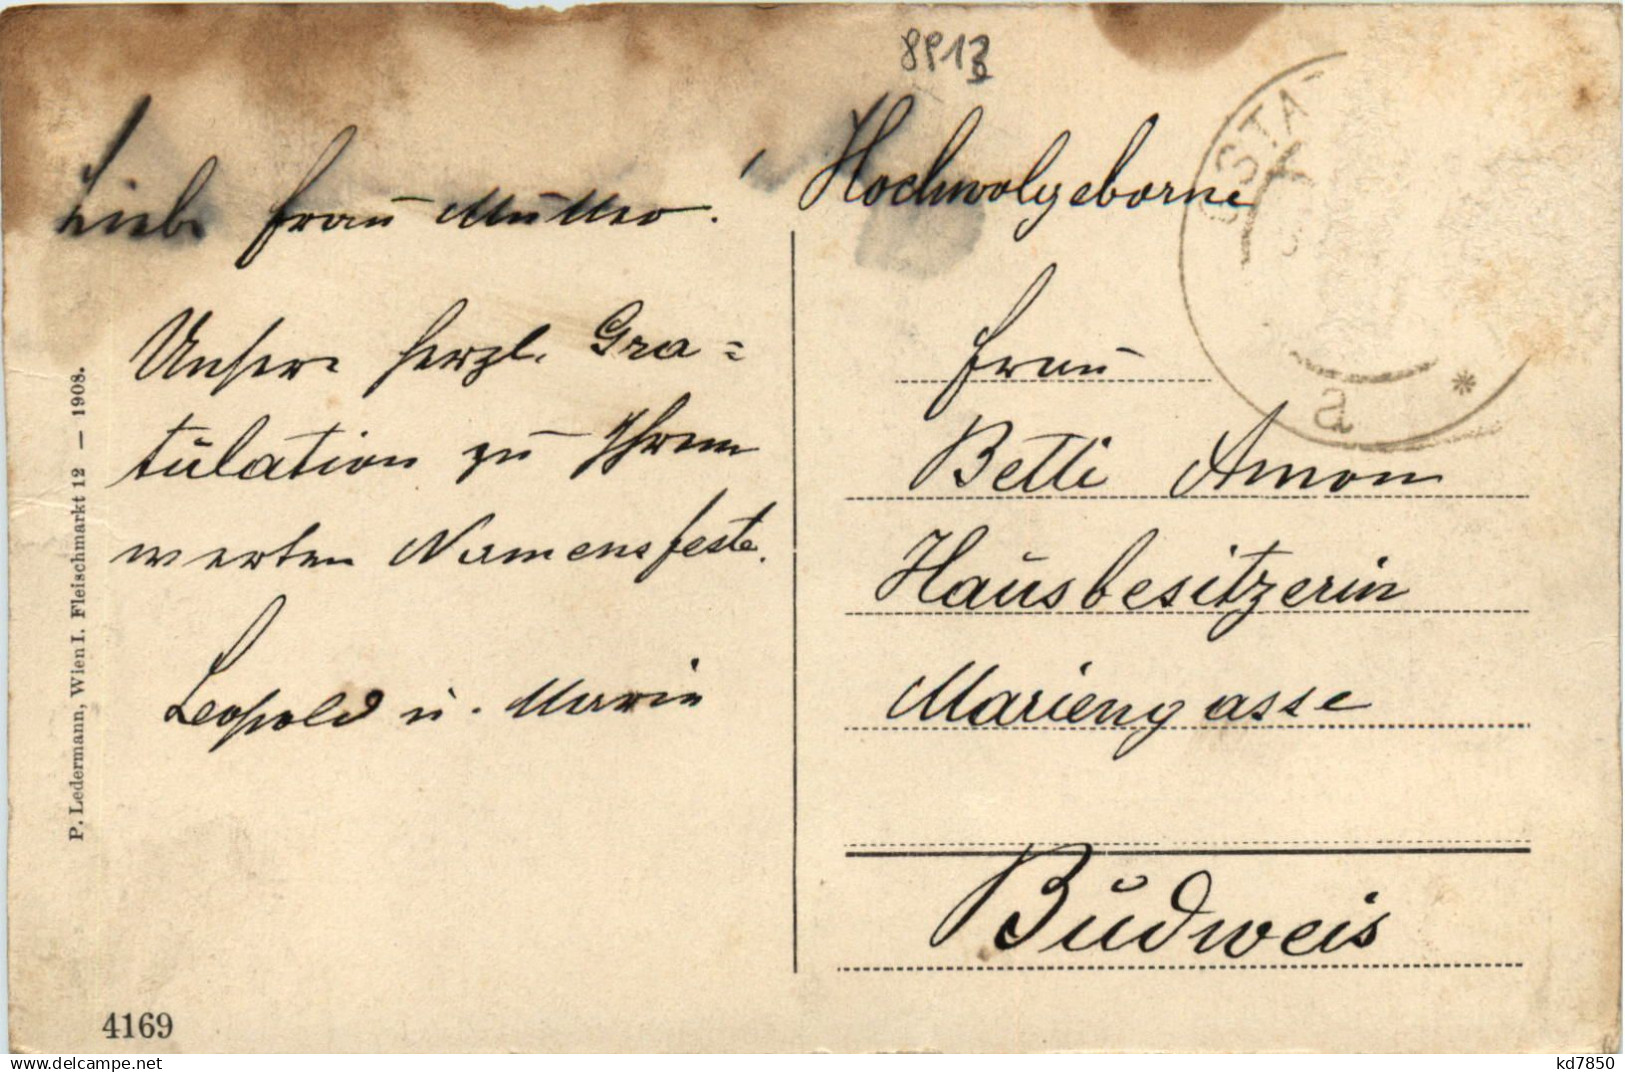 8P13
Liebe Frau Mutter!
Unsere herzl. Gra=
tulation zu Ihrem
werten Namensfeste.
Leopold u. Marie
Hochwolgeborne
Frau
Betti Amon
Hausbesitzerin
Mariengasse
Budweis
P. Ledermann, Wien I. Fleischmarkt 12 — 1908.
4169
a *
www.delcampe.net
kd7850